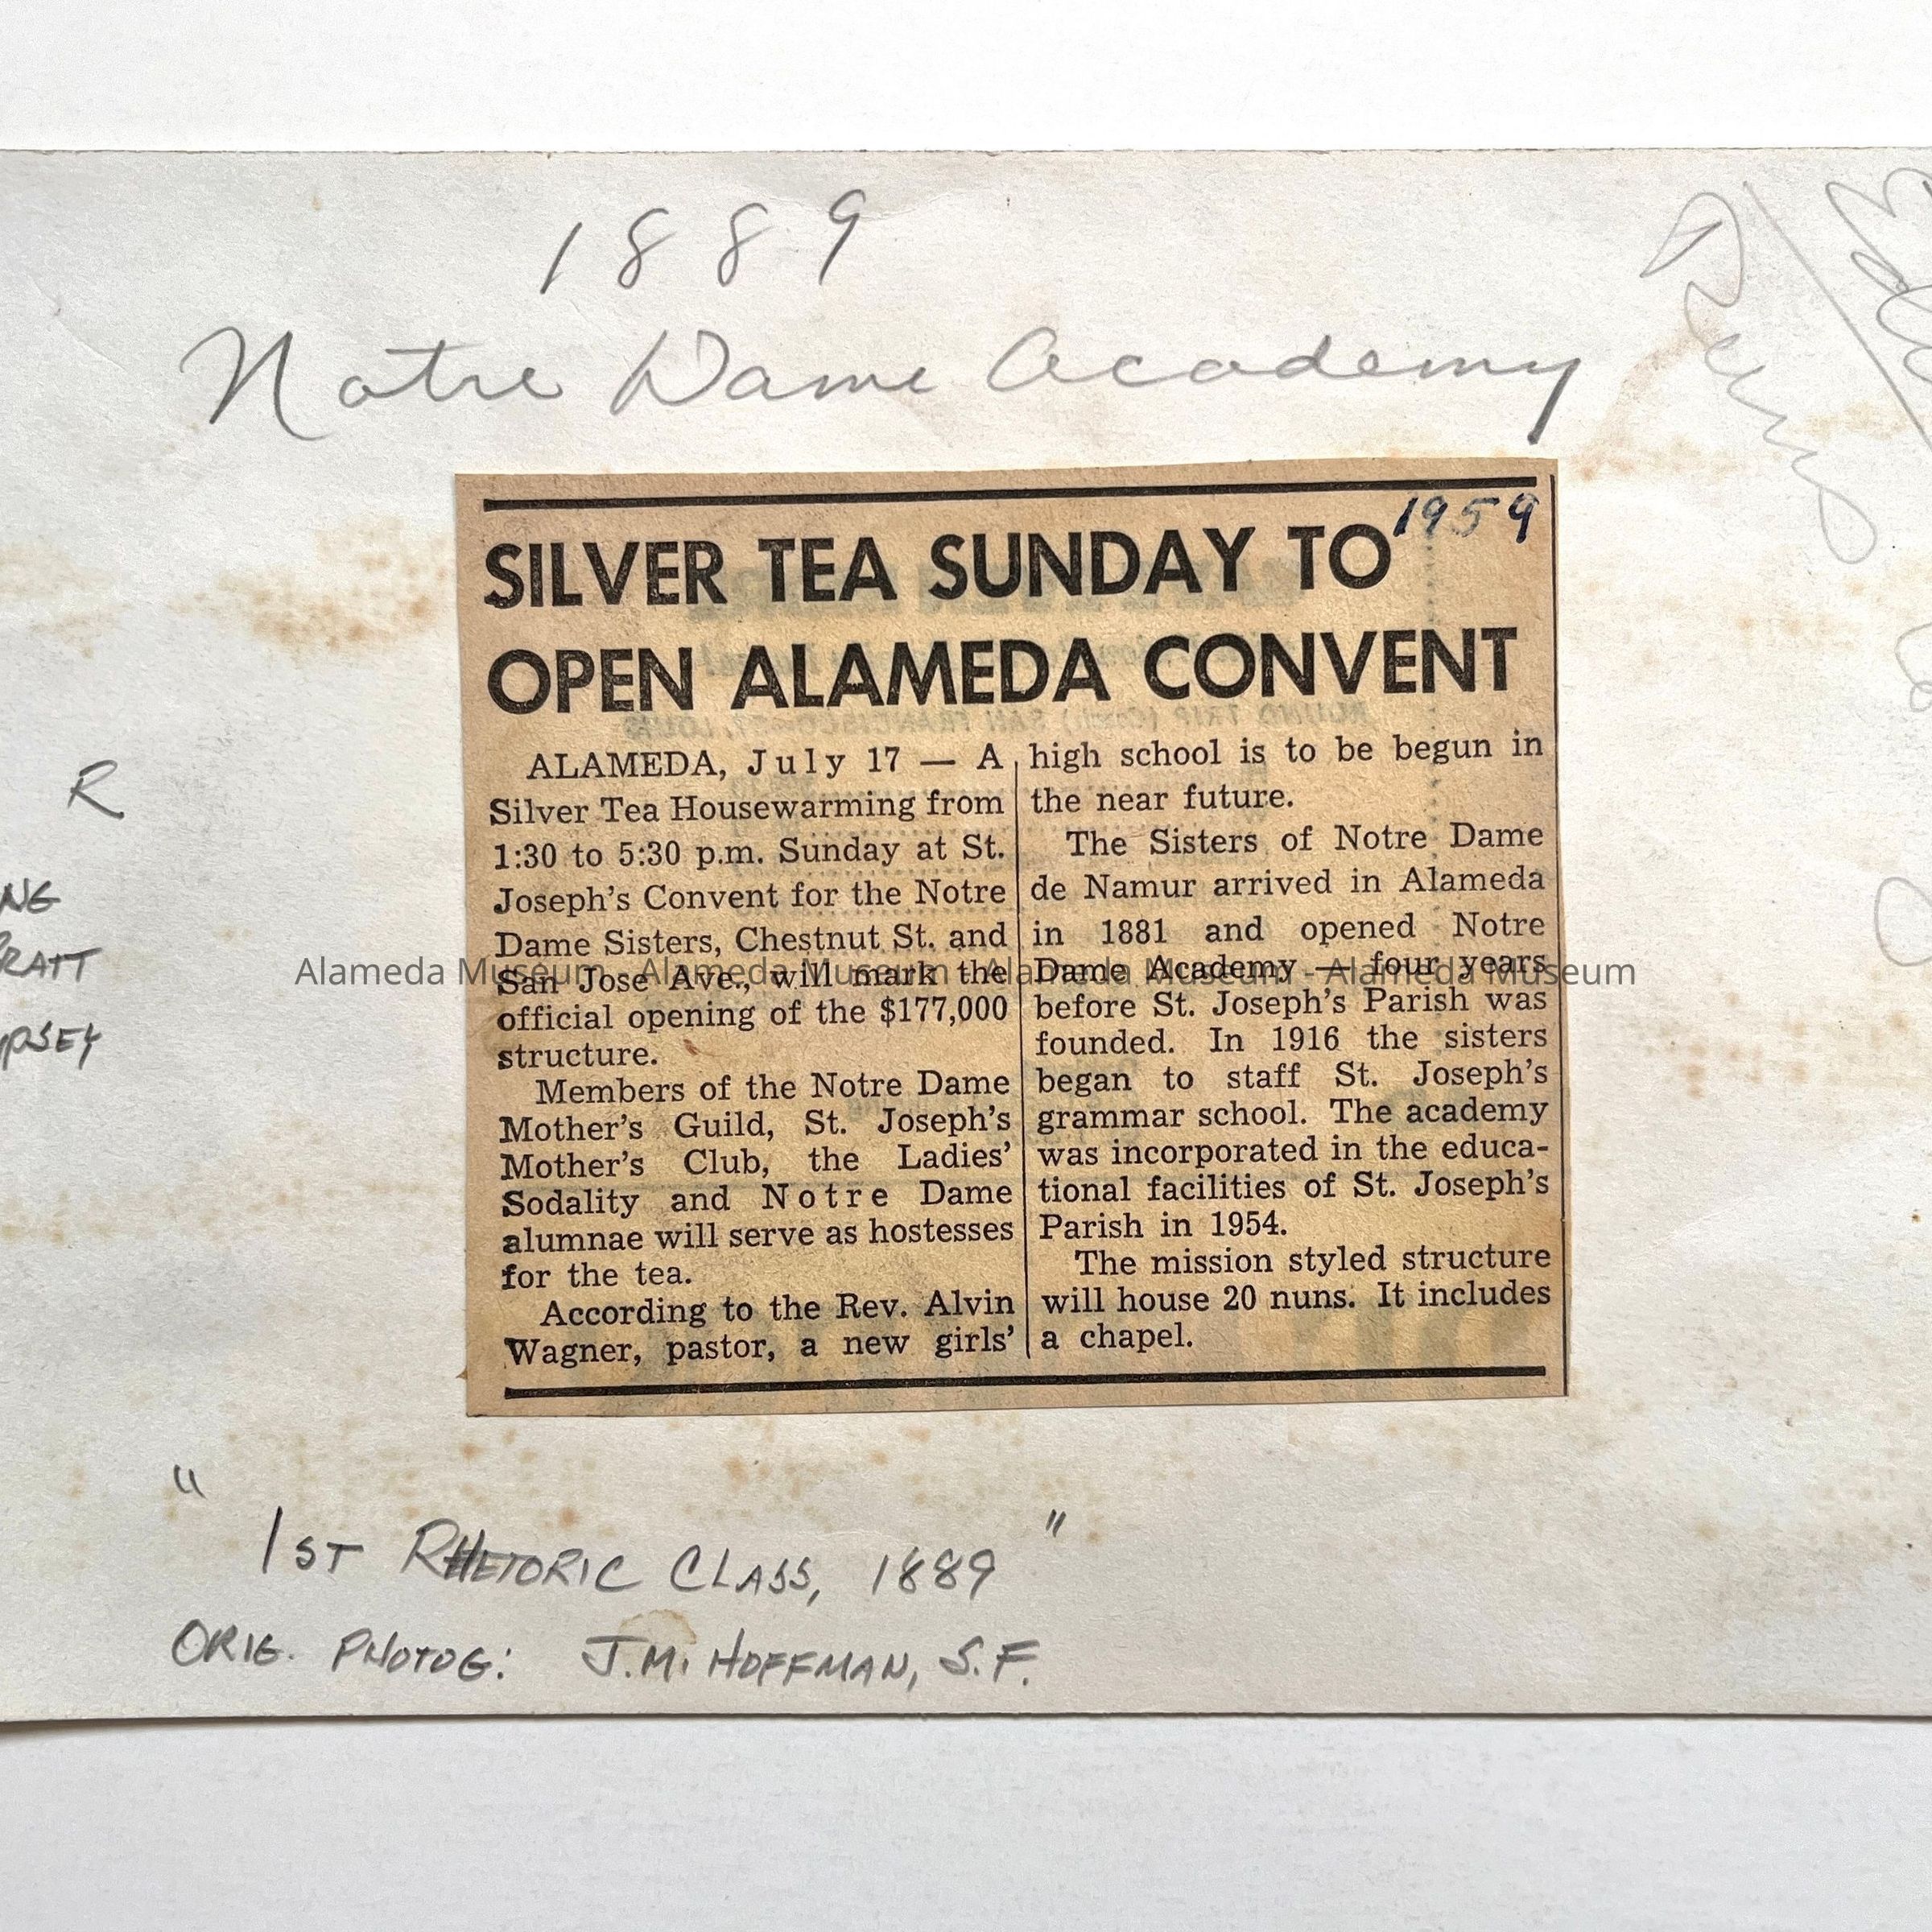 1889
Notre Dame Academy
1959
SILVER TEA SUNDAY TO
OPEN ALAMEDA CONVENT
ALAMEDA, July 17 — A
Silver Tea Housewarming from
1:30 to 5:30 p.m. Sunday at St.
Joseph's Convent for the Notre
Dame Sisters, Chestnut St. and
San Jose Ave., will mark the
official opening of the $177,000
structure.
Members of the Notre Dame
Mother's Guild, St. Joseph's
Mother's Club, the Ladies'
Sodality and Notre Dame
alumnae will serve as hostesses
for the tea.
According to the Rev. Alvin
Wagner, pastor, a new girls'
high school is to be begun in
the near future.
The Sisters of Notre Dame
de Namur arrived in Alameda
in 1881 and opened Notre
Dame Academy — four years
before St. Joseph's Parish was
founded. In 1916 the sisters
began to staff St. Joseph's
grammar school. The academy
was incorporated in the educa-
tional facilities of St. Joseph's
Parish in 1954.
The mission styled structure
will house 20 nuns. It includes
a chapel.
R
NG
RATT
PSEY
"1ST RHETORIC CLASS, 1889"
ORIG. PHOTOG: J.M. HOFFMAN, S.F.
Alameda Museum - Alameda Museum - Alameda Museum - Alameda Museum